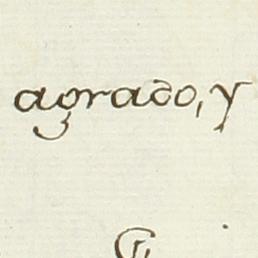 agrado, y